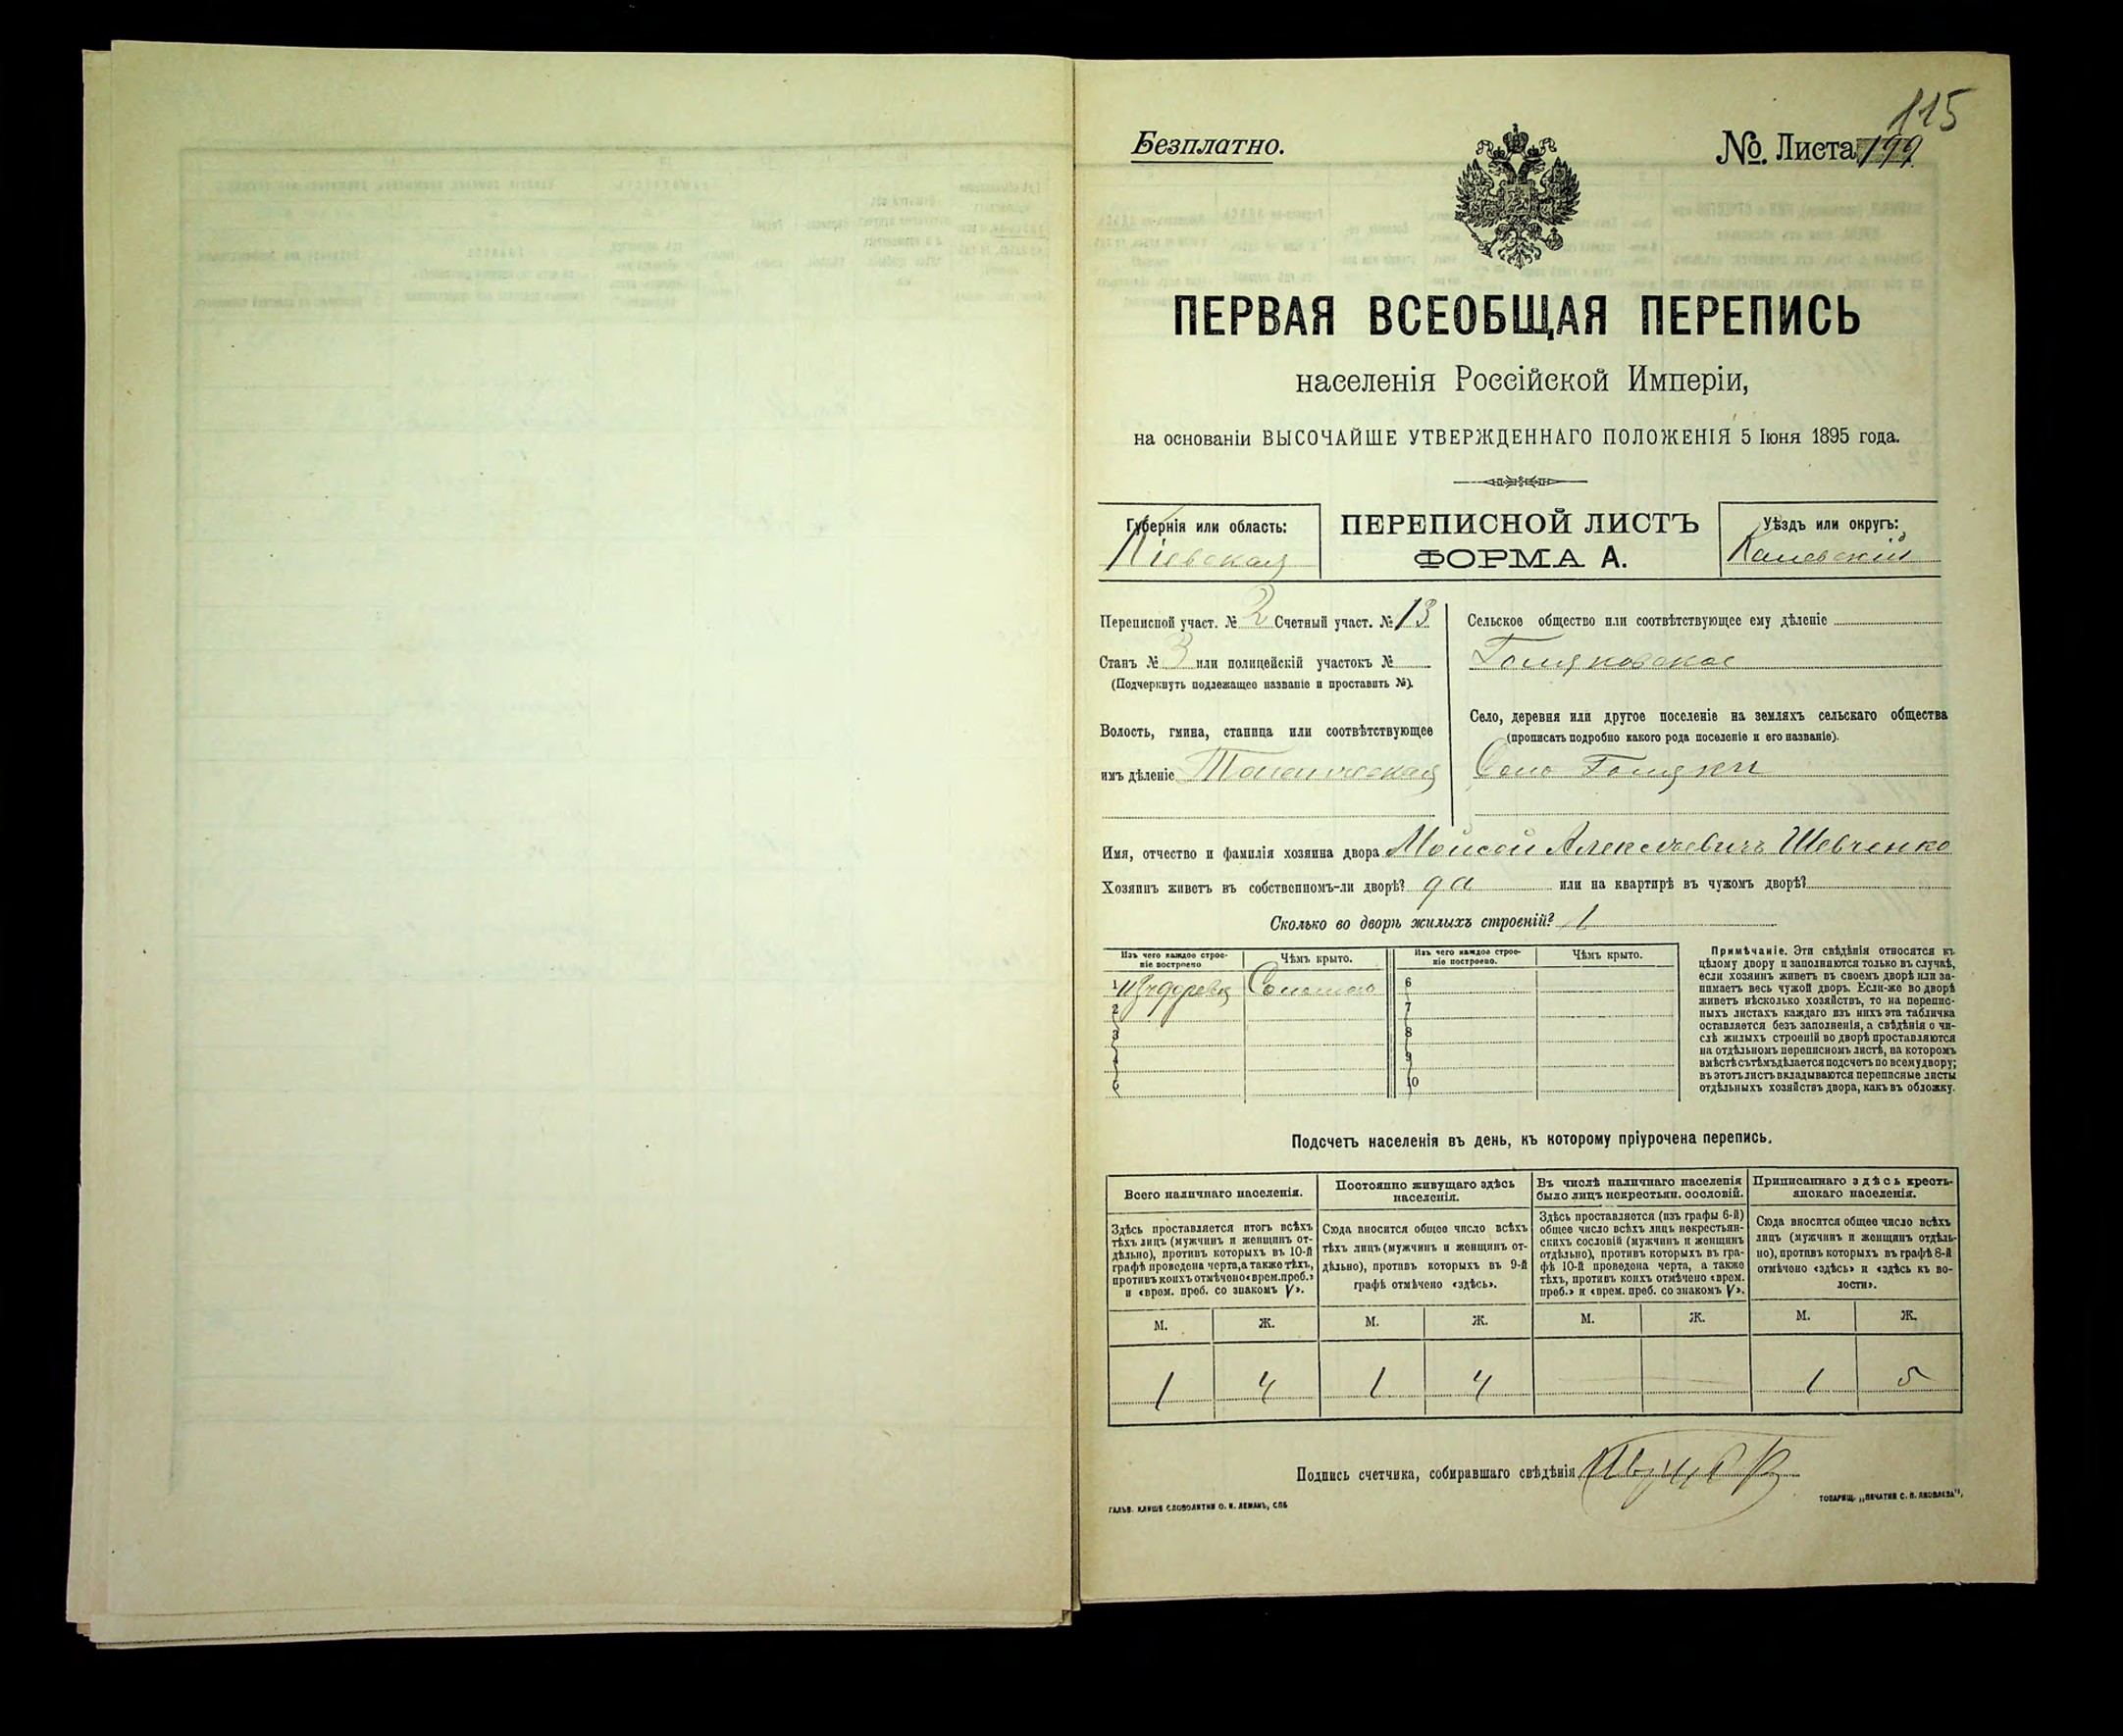 115
Безплатно.
№. Листа 199
ПЕРВАЯ ВСЕОБЩАЯ ПЕРЕПИСЬ
населенія Россійской Имперіи,
на основаніи ВЫСОЧАЙШЕ УТВЕРЖДЕННАГО ПОЛОЖЕНІЯ 5 Іюня 1895 года.
Губернія или область:
Кіевская
ПЕРЕПИСНОЙ ЛИСТЪ
ФОРМА А.
Уѣздъ или округъ:
Каневскій
Переписной участ. № 2 Счетный участ. № 13
Станъ № 3 или полицейскій участокъ №
(Подчеркнуть подлежащее названіе и проставить №).
Волость, гмина, станица или соотвѣтствующее
имъ дѣленіе
Сельское общество или соотвѣтствующее ему дѣленіе
Голяковское
Село, деревня или другое поселеніе на земляхъ сельскаго общества
(прописать подробно какого рода поселеніе и его названіе).
Село Голяки
Имя, отчество и фамилія хозяина двора Мойсей Алексѣевичъ Шевченко
Хозяинъ живетъ въ собственномъ-ли дворѣ? да или на квартирѣ въ чужомъ дворѣ?
Сколько во дворѣ жилыхъ строеній? 1
Изъ чего каждое строе-
ніе построено
Чѣмъ крыто.
Изъ чего каждое строе-
ніе построено.
Чѣмъ крыто.
1 изъ дерева Соломою 6
2 7
3 8
4 9
5 10
Примѣчаніе. Эти свѣдѣнія относятся къ
цѣлому двору и заполняются только въ случаѣ,
если хозяинъ живетъ въ своемъ дворѣ или за-
нимаетъ весь чужой дворъ. Если-же во дворѣ
живетъ нѣсколько хозяйствъ, то на перепис-
ныхъ листахъ каждаго изъ нихъ эта табличка
оставляется безъ заполненія, а свѣдѣнія о чи-
слѣ жилыхъ строеній во дворѣ проставляются
на отдѣльномъ переписномъ листѣ, на которомъ
вмѣстѣ съ тѣмъ дѣлается подсчетъ по всему двору;
въ этотъ листъ вкладываются переписные листы
отдѣльныхъ хозяйствъ двора, какъ въ обложку.
Подсчетъ населенія въ день, къ которому пріурочена перепись.
Всего наличнаго населенія.
Здѣсь проставляется итогъ всѣхъ
тѣхъ лицъ (мужчинъ и женщинъ от-
дѣльно), противъ которыхъ въ 10-й
графѣ проведена черта, а также тѣхъ,
противъ коихъ отмѣчено «врем. преб.»
и «врем. преб. со знакомъ V».
Постоянно живущаго здѣсь
населенія.
Сюда вносится общее число всѣхъ
тѣхъ лицъ (мужчинъ и женщинъ от-
дѣльно), противъ которыхъ въ 9-й
графѣ отмѣчено «здѣсь».
Въ числѣ наличнаго населенія
было лицъ некрестьян. сословій.
Здѣсь проставляется (изъ графы 6-й)
общее число всѣхъ лицъ некрестьян-
скихъ сословій (мужчинъ и женщинъ
отдѣльно), противъ которыхъ въ гра-
фѣ 10-й проведена черта, а также
тѣхъ, противъ коихъ отмѣчено «врем.
преб.» и «врем. преб. со знакомъ V».
Приписаннаго здѣсь кресть-
янскаго населенія.
Сюда вносится общее число всѣхъ
лицъ (мужчинъ и женщинъ отдѣль-
но), противъ которыхъ въ графѣ 8-й
отмѣчено «здѣсь» и «здѣсь къ во-
лости».
М. Ж. М. Ж. М. Ж. М. Ж.
1 4 1 4 1 5
Подпись счетчика, собиравшаго свѣдѣнія
ГАЛЬВ. КЛИШЕ СЛОВОЛИТНИ О. И. ЛЕМАНЪ, СПБ
ТОВАРИЩ. „ПЕЧАТНЯ С. П. ЯКОВЛЕВА",